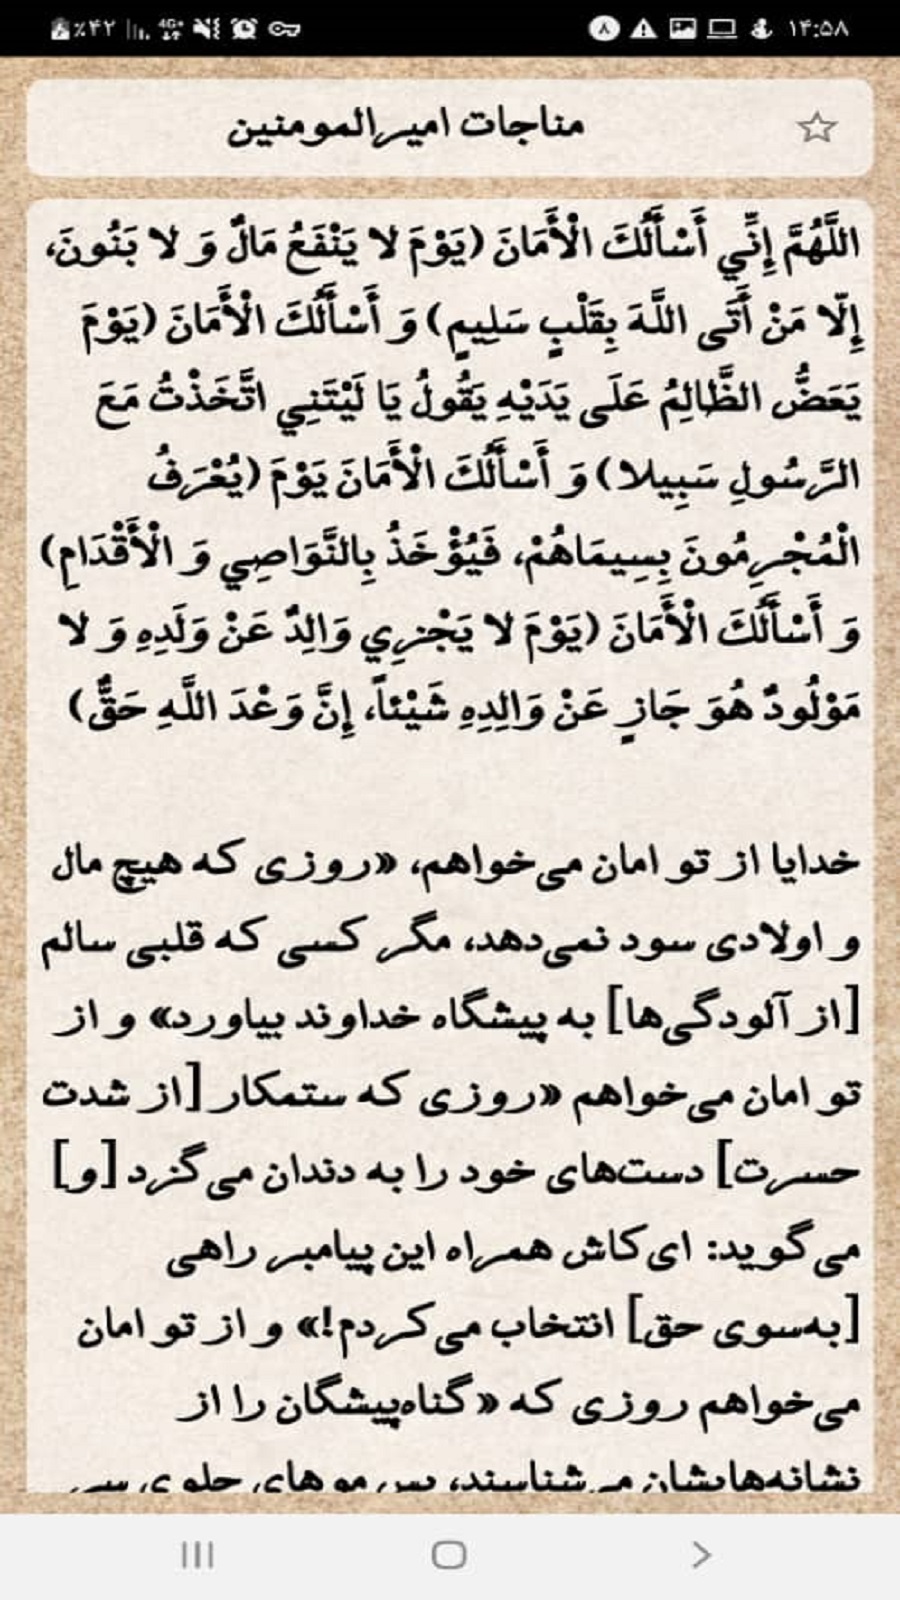 ۱۴:۵۸ ۸ 4G+ ٪۴۲
مناجات امیرالمومنین
اللَّهُمَّ إِنِّي أَسْأَلُكَ الْأَمَانَ (يَوْمَ لا يَنْفَعُ مَالٌ وَ لا بَنُونَ،
إِلّا مَنْ أَتَى اللَّهَ بِقَلْبٍ سَلِيمٍ) وَ أَسْأَلُكَ الْأَمَانَ (يَوْمَ
يَعَضُّ الظَّالِمُ عَلَى يَدَيْهِ يَقُولُ يَا لَيْتَنِي اتَّخَذْتُ مَعَ
الرَّسُولِ سَبِيلا) وَ أَسْأَلُكَ الْأَمَانَ يَوْمَ (يُعْرَفُ
الْمُجْرِمُونَ بِسِيمَاهُمْ، فَيُؤْخَذُ بِالنَّوَاصِي وَ الْأَقْدَامِ)
وَ أَسْأَلُكَ الْأَمَانَ (يَوْمَ لا يَجْزِي وَالِدٌ عَنْ وَلَدِهِ وَ لا
مَوْلُودٌ هُوَ جَازٍ عَنْ وَالِدِهِ شَيْئاً، إِنَّ وَعْدَ اللَّهِ حَقٌّ)
خدایا از تو امان می‌خواهم، «روزی که هیچ مال
و اولادی سود نمی‌دهد، مگر کسی که قلبی سالم
[از آلودگی‌ها] به پیشگاه خداوند بیاورد» و از
تو امان می‌خواهم «روزی که ستمکار [از شدت
حسرت] دست‌های خود را به دندان می‌گزد [و]
می‌گوید: ای کاش همراه این پیامبر راهی
[به‌سوی حق] انتخاب می‌کردم!» و از تو امان
می‌خواهم روزی که «گناه‌پیشگان را از
نشانه‌هایشان می‌شناسند، پس موهای جلوی سر